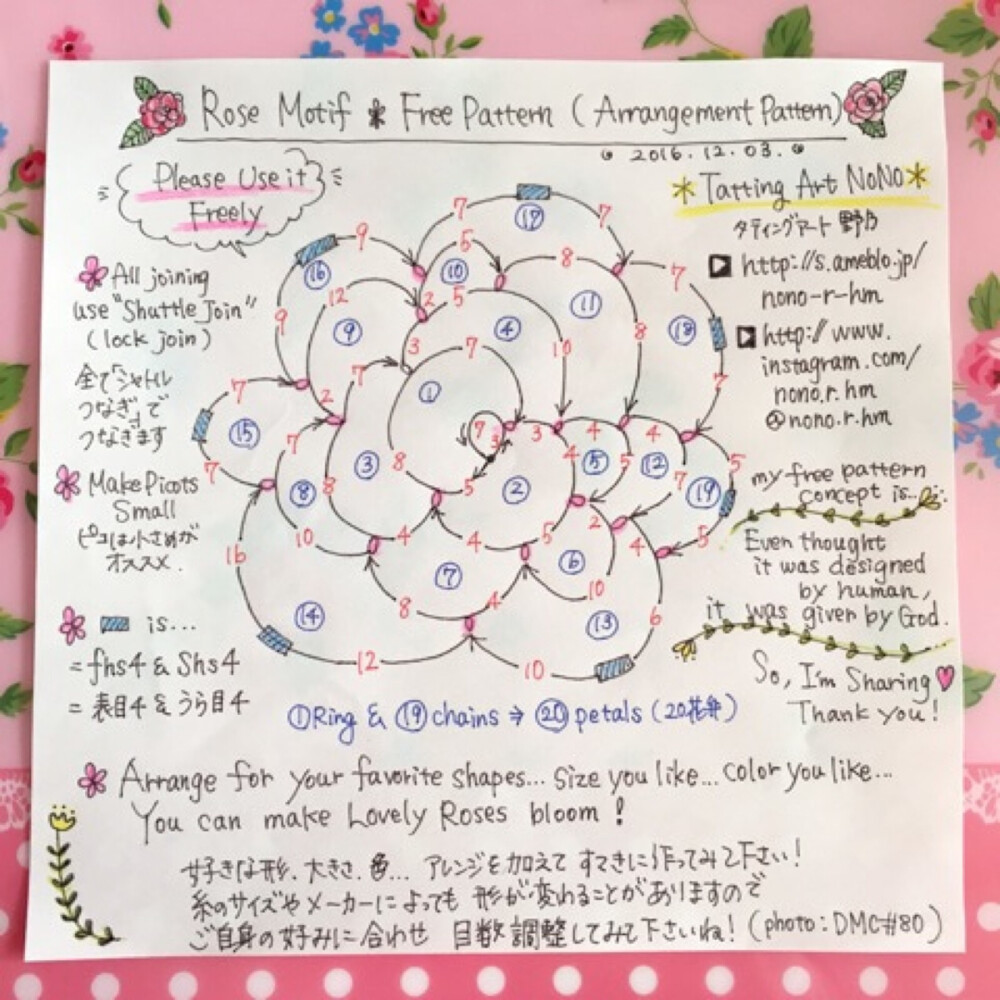 Rose Motif * Free Pattern (Arrangement Pattern)
2016.12.03.
Please Use it
Freely
*Tatting Art NoNo*
タティングアート 野乃
http://s.ameblo.jp/
nono-r-hm
http://www.
instagram.com/
nono.r.hm
@nono.r.hm
All joining
use "Shuttle Join"
(lock join)
全て「シャトル
つなぎ」で
つなぎます
Make Picots
Small
ピコは小さめが
オススメ.
is...
= fhs4 & Shs4
= 表目4 & うら目4
my free pattern
concept is...
Even thought
it was designed
by human,
it was given by God.
So, I'm Sharing
Thank you!
7 ⑰ 7
9 ⑯ 5 ⑩ 8 7
12 2 5 ⑪ ⑱
9 ⑨ 3 7 ④ 10 8
7 7 ① 7
7 2 7 3 3 4 4
⑮ 7 ③ 8 4 ⑤ 5 ⑫ 5
7 ⑧ 8 5 ② 7 ⑲
16 10 4 4 5 2 4 5
⑦ ⑥ 10
⑭ 8 4 ⑬ 6
12 10
①Ring & ⑲chains ⇒ ⑳petals (20花弁)
Arrange for your favorite shapes... Size you like... Color you like...
You can make Lovely Roses bloom!
好きな形. 大きさ. 色... アレンジを加えて すてきに作ってみて下さい!
糸のサイズやメーカーによっても 形が変わることがありますので
ご自身の好みに合わせ 目数調整してみて下さいね! (photo: DMC#80)